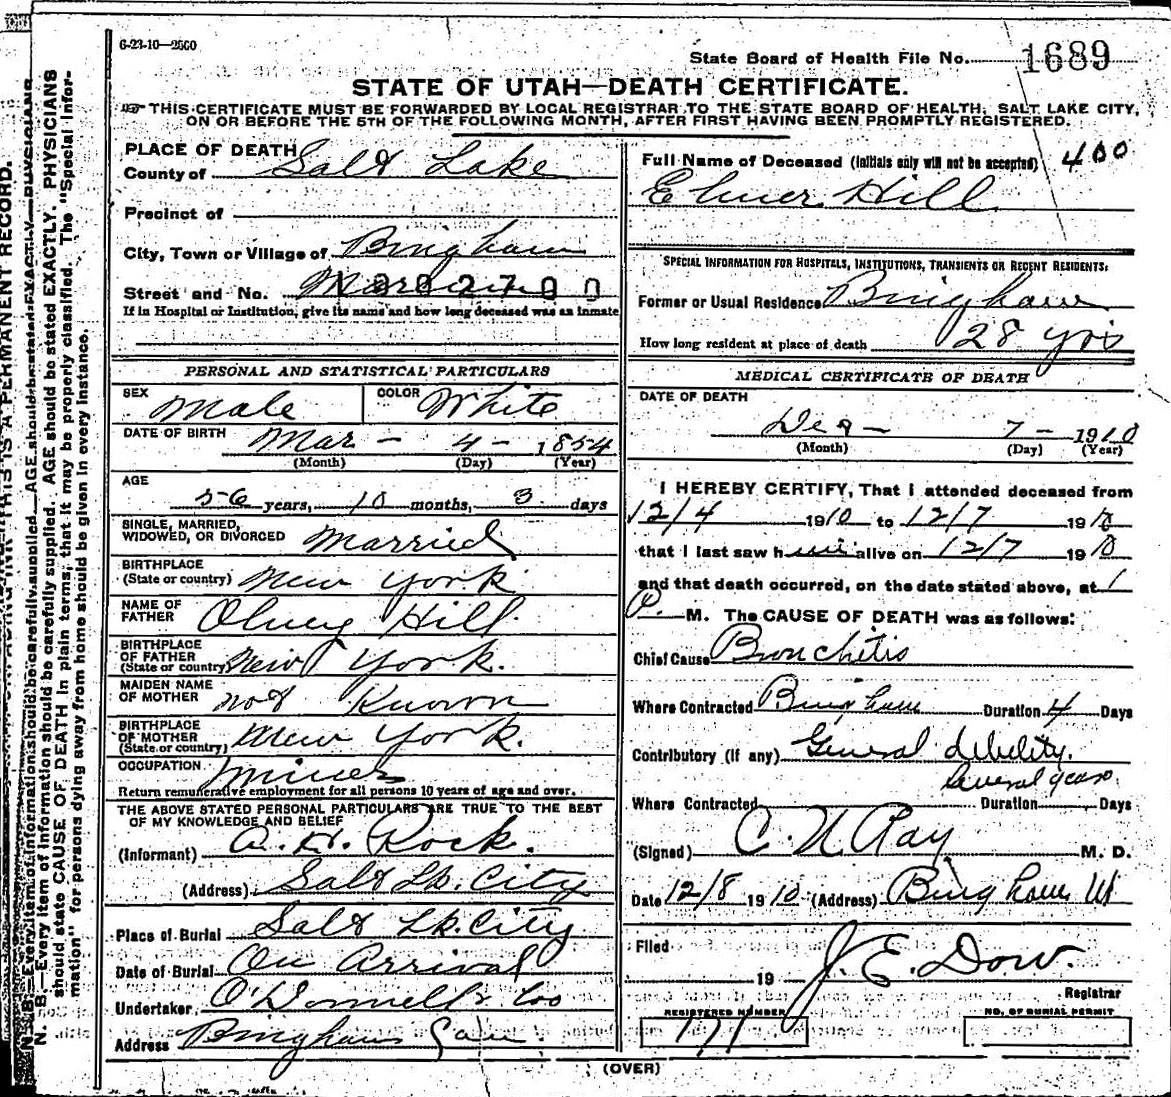 6-23-10—2500
State Board of Health File No. 1689
STATE OF UTAH—DEATH CERTIFICATE.
THIS CERTIFICATE MUST BE FORWARDED BY LOCAL REGISTRAR TO THE STATE BOARD OF HEALTH, SALT LAKE CITY,
ON OR BEFORE THE 5TH OF THE FOLLOWING MONTH, AFTER FIRST HAVING BEEN PROMPTLY REGISTERED.
PLACE OF DEATH
County of Salt Lake
Precinct of
City, Town or Village of Bingham
Street and No.
If in Hospital or Institution, give its name and how long deceased was an inmate
PERSONAL AND STATISTICAL PARTICULARS
SEX Male COLOR White
DATE OF BIRTH Mar - 4 - 1854
(Month) (Day) (Year)
AGE
56 years, 10 months, 3 days
SINGLE, MARRIED,
WIDOWED, OR DIVORCED Married
BIRTHPLACE
(State or country) New York
NAME OF
FATHER Olney Hill
BIRTHPLACE
OF FATHER
(State or country) New York.
MAIDEN NAME
OF MOTHER not Known
BIRTHPLACE
OF MOTHER
(State or country) New York.
OCCUPATION Miner
Return remunerative employment for all persons 10 years of age and over.
THE ABOVE STATED PERSONAL PARTICULARS ARE TRUE TO THE BEST
OF MY KNOWLEDGE AND BELIEF
(Informant) A. H. Rock.
(Address) Salt Lk. City
Place of Burial Salt Lk. City
Date of Burial On Arrival
Undertaker O'Donnell & Co
Address Bingham Can.
Full Name of Deceased (Initials only will not be accepted) 400
Elmer Hill
SPECIAL INFORMATION FOR HOSPITALS, INSTITUTIONS, TRANSIENTS OR RECENT RESIDENTS:
Former or Usual Residence Bingham
How long resident at place of death 28 yrs
MEDICAL CERTIFICATE OF DEATH
DATE OF DEATH
Dec - 7 - 1910
(Month) (Day) (Year)
I HEREBY CERTIFY, That I attended deceased from
12/4 1910 to 12/7 1910
that I last saw him alive on 12/7 1910
and that death occurred, on the date stated above, at 1
P. M. The CAUSE OF DEATH was as follows:
Chief Cause Bronchitis
Where Contracted Bingham Duration 4 Days
Contributory (if any) General debility.
Several years.
Where Contracted Duration Days
(Signed) C. N. Ray M. D.
Date 12/8 1910 (Address) Bingham Ut
Filed
19 J. E. Dow.
Registrar
REGISTERED NUMBER
171
NO. OF BURIAL PERMIT
(OVER)
N. B.—Every item of information should be carefully supplied. AGE should be stated EXACTLY. PHYSICIANS
should state CAUSE OF DEATH in plain terms, that it may be properly classified. The "Special Infor-
mation" for persons dying away from home should be given in every instance.